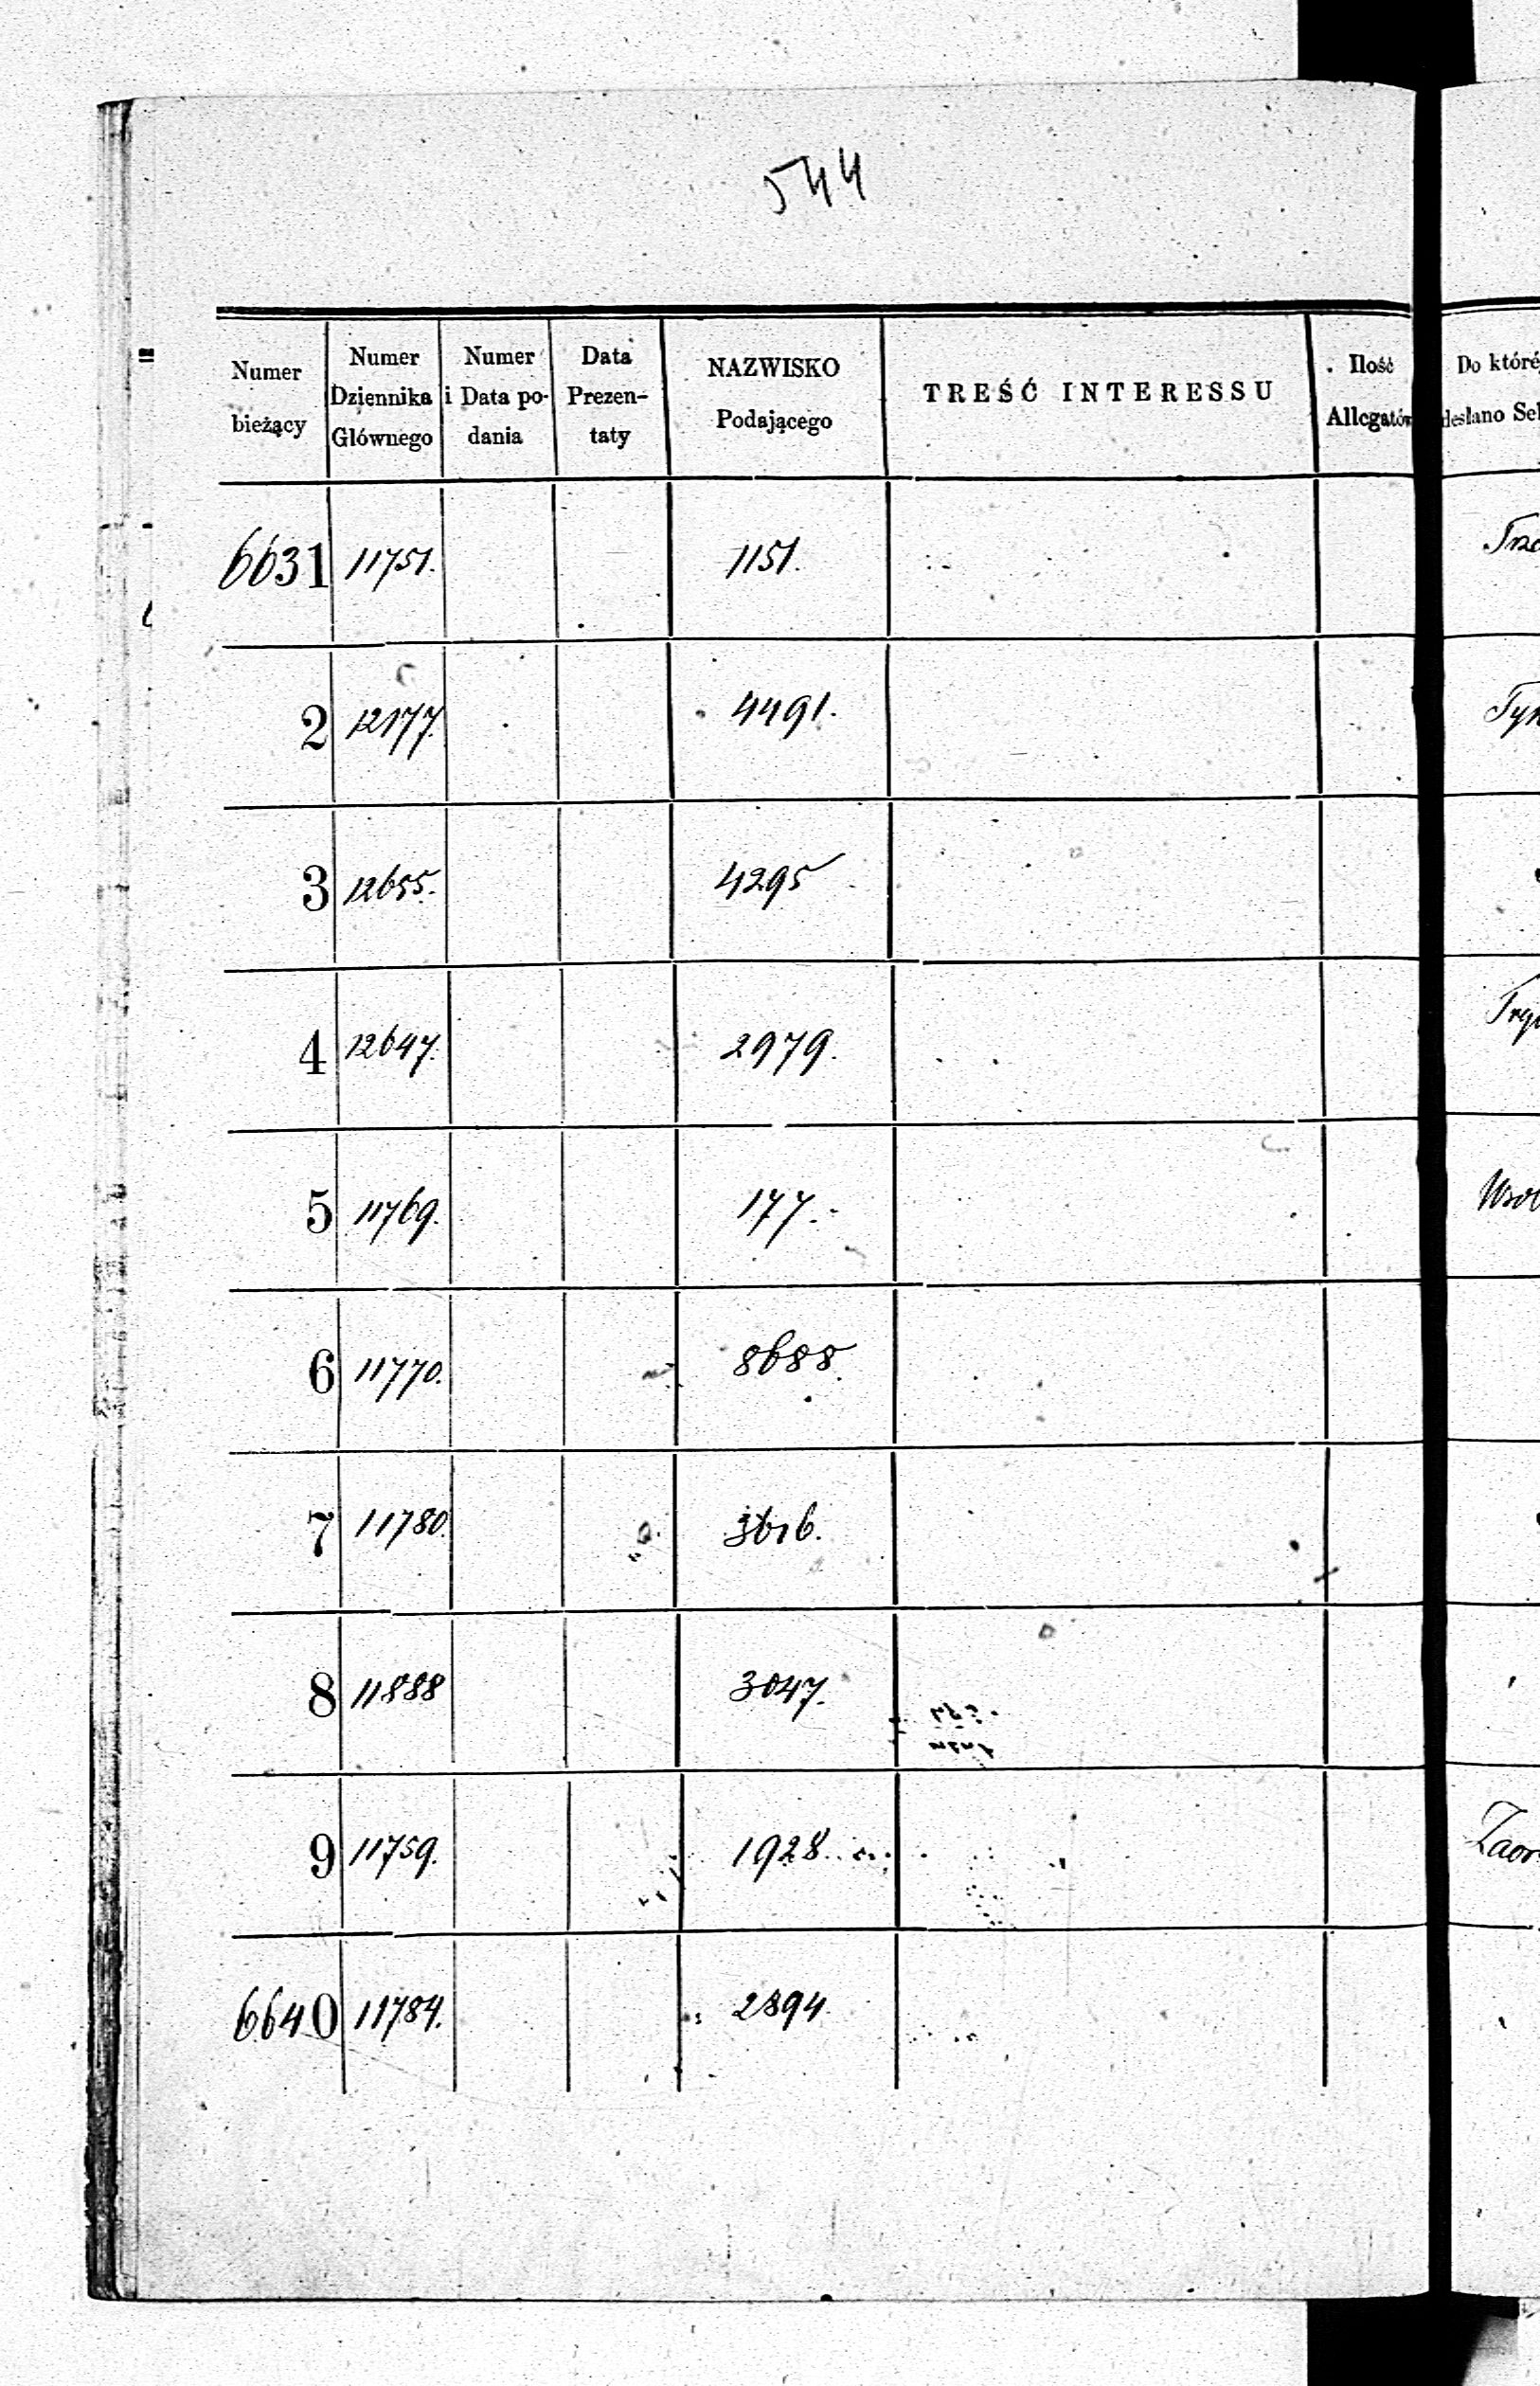 544
Numer bieżący | Numer Dziennika Głównego | Numer i Data podania | Data Prezentaty | NAZWISKO Podającego | TREŚĆ INTERESSU | Ilość Allegatów | Do któré
6631 | 11751. | 1151.
2 | 12177. | 4491.
3 | 12655. | 4295
4 | 12647. | 2979.
5 | 11769. | 177.
6 | 11770. | 8688
7 | 11780. | 3616.
8 | 11888 | 3047.
9 | 11759. | 1928. | Zaor
6640 | 11784. | 2894